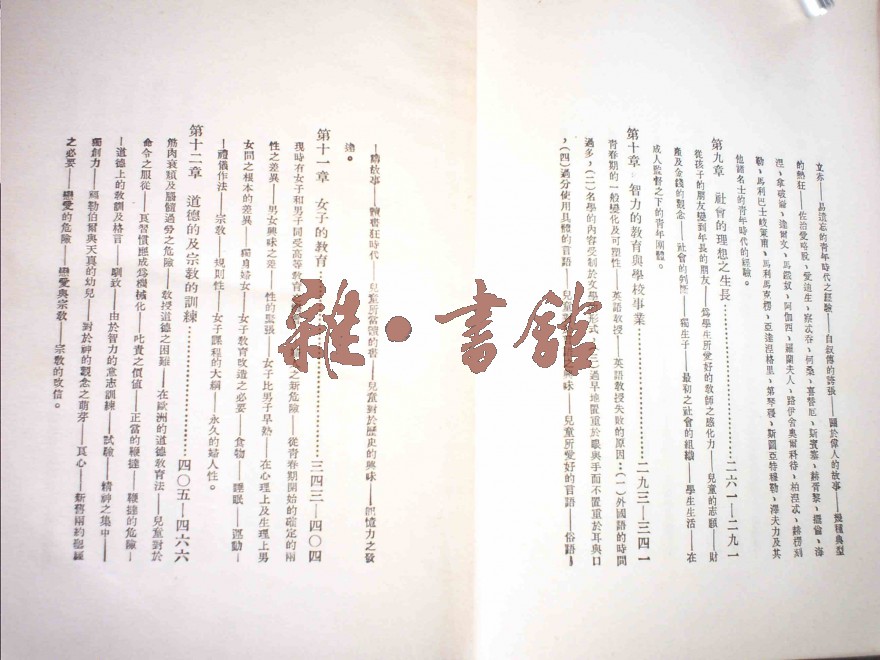 文士——易遺忘的青年時代之經驗——自叙傳的誇張——關於偉人的故事——幾種典型
的熱狂——佐治愛略脫、愛迪生、
他諸名士的青年時代的經驗。
第九章 社會的理想之生長……二六一—二九一
從孩子的朋友變到年長的朋友——爲學生所愛好的教師之感化力——兒童的志願——財
產及金錢的觀念——社會的判斷——獨生子——最初之社會的組織——學生生活——在
成人監督之下的青年團體。
第十章 智力的教育與學校事業……二九三—三四一
青春期的一般變化及可塑性——英語教授——英語教授失敗的原因:(一)外國語的時間
過多,(二)名學的內容受制於文學形式,(三)過早地置重於眼與手而不置重於耳與口
,(四)過分使用具體的言語——兒童 味——兒童所愛好的言語——俗語
——講故事——讀書狂時代——兒童所當讀的書——兒童對於歷史的興味——記憶力之發
達。
第十一章 女子的教育……三四三—四〇四
現時有女子和男子同受高等教育 之新危險——從青春期開始的確定的兩
性之差異——男女興味之差——性的緊張——女子比男子早熟——在心理上及生理上男
女間之根本的差異——獨身婦女——女子教育改造之必要——食物——睡眠——運動—
—禮儀作法——宗教——規則性——女子課程的大綱——永久的婦人性。
第十二章 道德的及宗教的訓練……四〇五—四六六
筋肉衰頹及腦髓過勞之危險——教授道德之困難——在歐洲的道德教育法——兒童對於
命令之服從——良習慣應成爲機械化——叱責之價值——正當的鞭撻——鞭撻的危險—
—道德上的教訓及格言——馴致——由於智力的意志訓練——試驗——精神之集中——
獨創力——福勒伯爾與天真的幼兒——對於神的觀念之萌芽——良心——新舊兩約聖經
之必要——戀愛的危險——戀愛與宗教——宗教的改信。
雜·書館